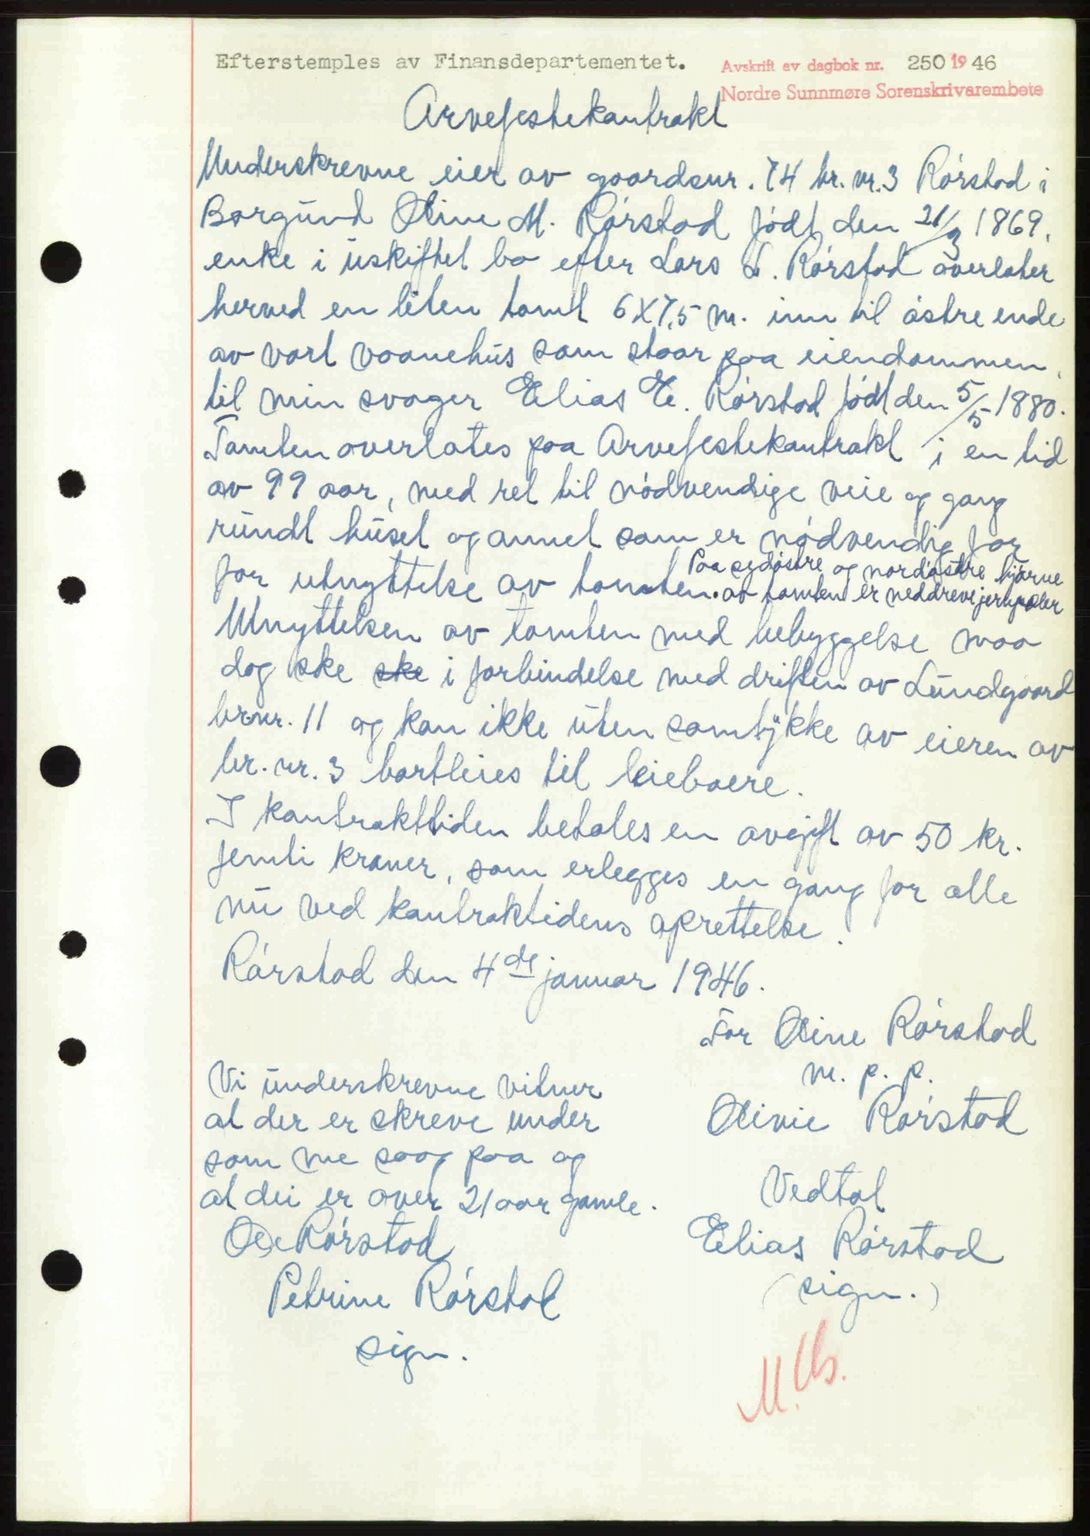 Efterstemples av Finansdepartementet.
Avskrift av dagbok nr. 250 1946
Nordre Sunnmøre Sorenskrivarembete
Arvefestekontrakt
Underskrevne eier av gaardsnr. 74 br. nr. 3 Rørstad i
Borgund Oline M. Rørstad født den 21/3 1869,
enke i uskiftet bo efter Lars L. Rørstad overlater
herved en liten tomt 6 X 7,5 m. inn til østre ende
av vort vaanehus som staar paa eiendommen,
til min svoger Elias E. Rørstad født den 5/5 1880.
Tomten overlates paa Arvefestekontrakt i en tid
av 99 aar, med ret til nødvendige veie og gang
rundt huset og annet som er nødvendig for
for utnyttelse av tomten. Paa sydøstre og nordøstre hjørne
av tomten er neddreve jernpæler
Utnyttelsen av tomten med bebyggelse maa
dog ske ske i forbindelse med driften av Lundgaard
br.nr. 11 og kan ikke uten samtykke av eieren av
br. nr. 3 bortleies til leieboere.
I kontrakttiden betales en avgift av 50 kr.
femti kroner, som erlegges en gang for alle
nu ved kontraktidens oprettelse.
Rørstad den 4de januar 1946.
For Oline Rørstad
m. p. p.
Olivie Rørstad
Vi underskrevne vitner
at der er skreve under
som me saag paa og
at dei er over 21 aar gamle.
Vedtal
Ole Rørstad
Elias Rørstad
Petrine Rørstad
(sign.)
sign.